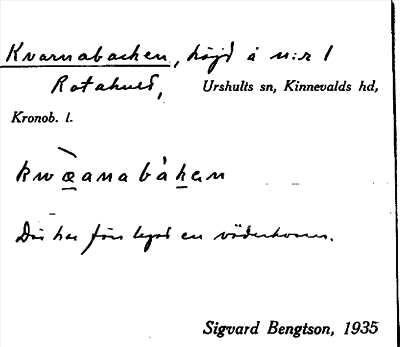 Kvarnabacken, höjd å n:r 1
Rotahult,
Urshults sn, Kinnevalds hd,
Kronob. l.
kwæanabàkan
Där har förr legat en väderkvarn.
Sigvard Bengtson, 1935